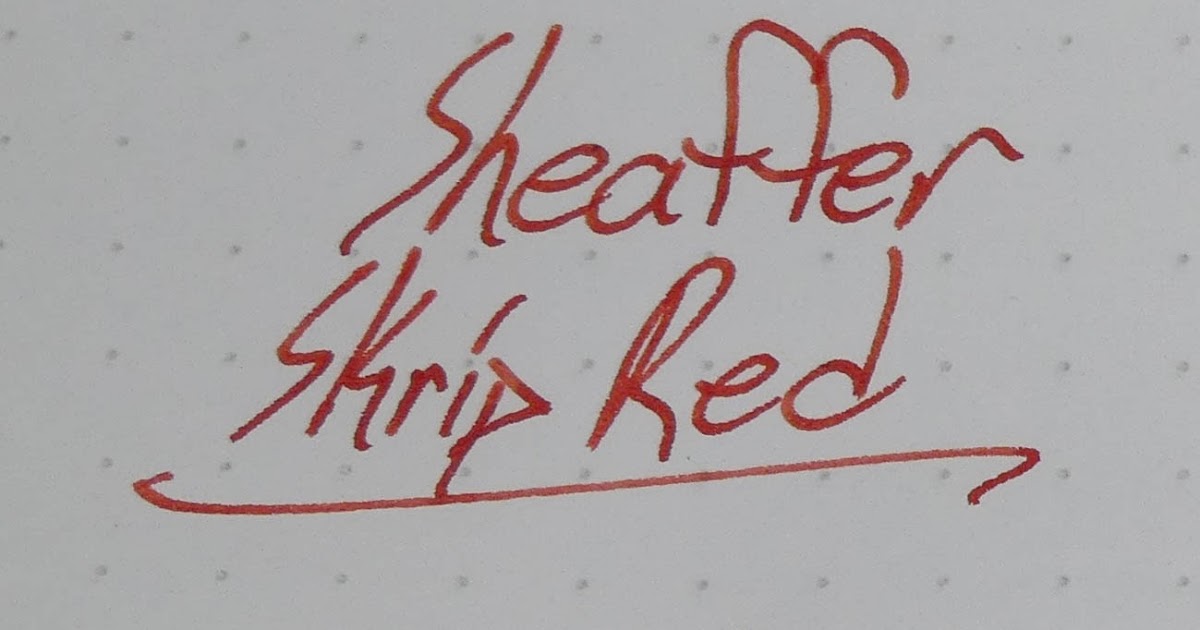 Sheaffer
Skrip Red